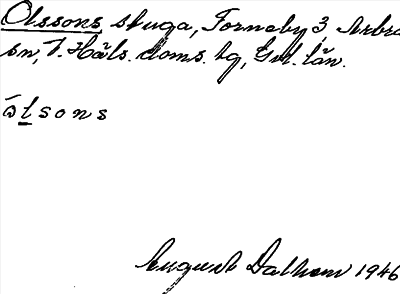 Olssons stuga, Forneby 3, Arbrå
sn, V. Häls. doms. tg, Gvl. län.
ólsons
August Dalhem 1946